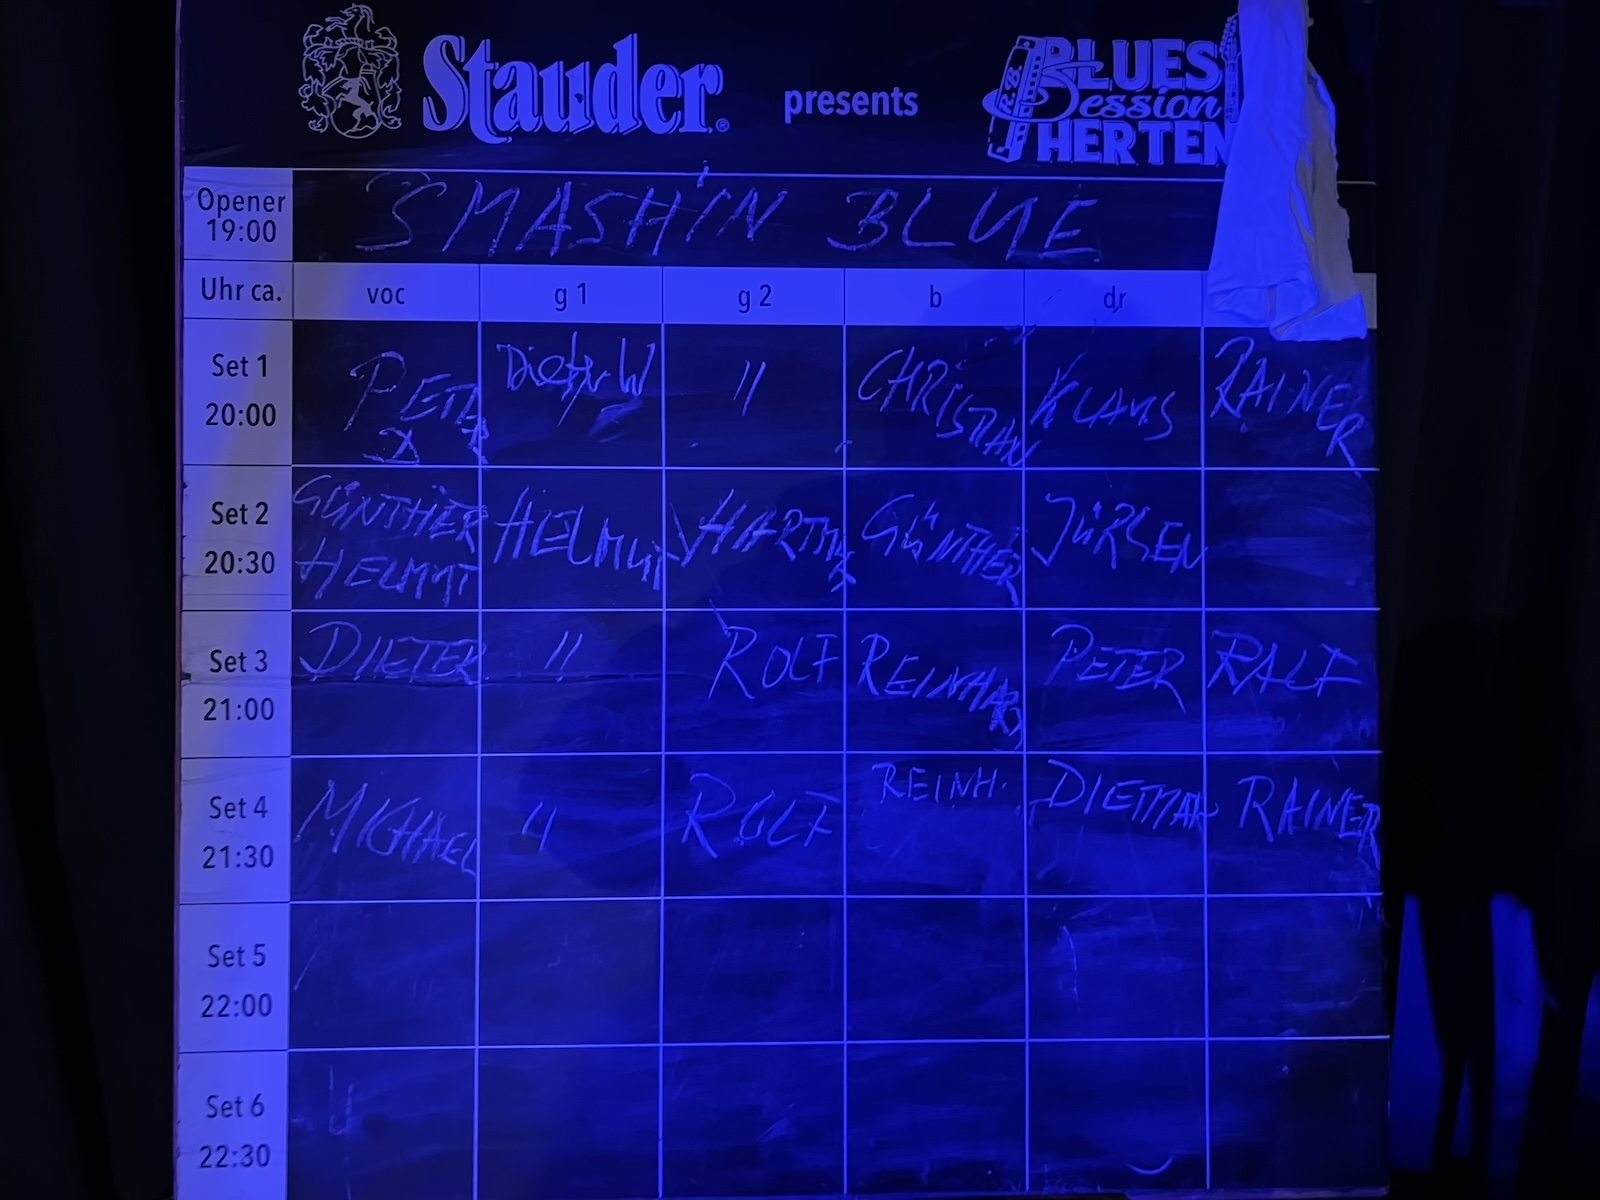 Stauder® presents R.B. BLUES Session HERTEN
Opener SMASHIN BLUE
19:00
Uhr ca. voc g 1 g 2 b dr
Set 1 PETER Dieter W " CHRISTIAN KLAUS RAINER
20:00 D
Set 2 GÜNTHER HELMUT HARTMUT GÜNTHER JÜRGEN
20:30 HELMUT
Set 3 DIETER " ROLF REINHARD PETER RALF
21:00
Set 4 MICHAEL " ROLF REINH. DIETMAR RAINER
21:30
Set 5
22:00
Set 6
22:30